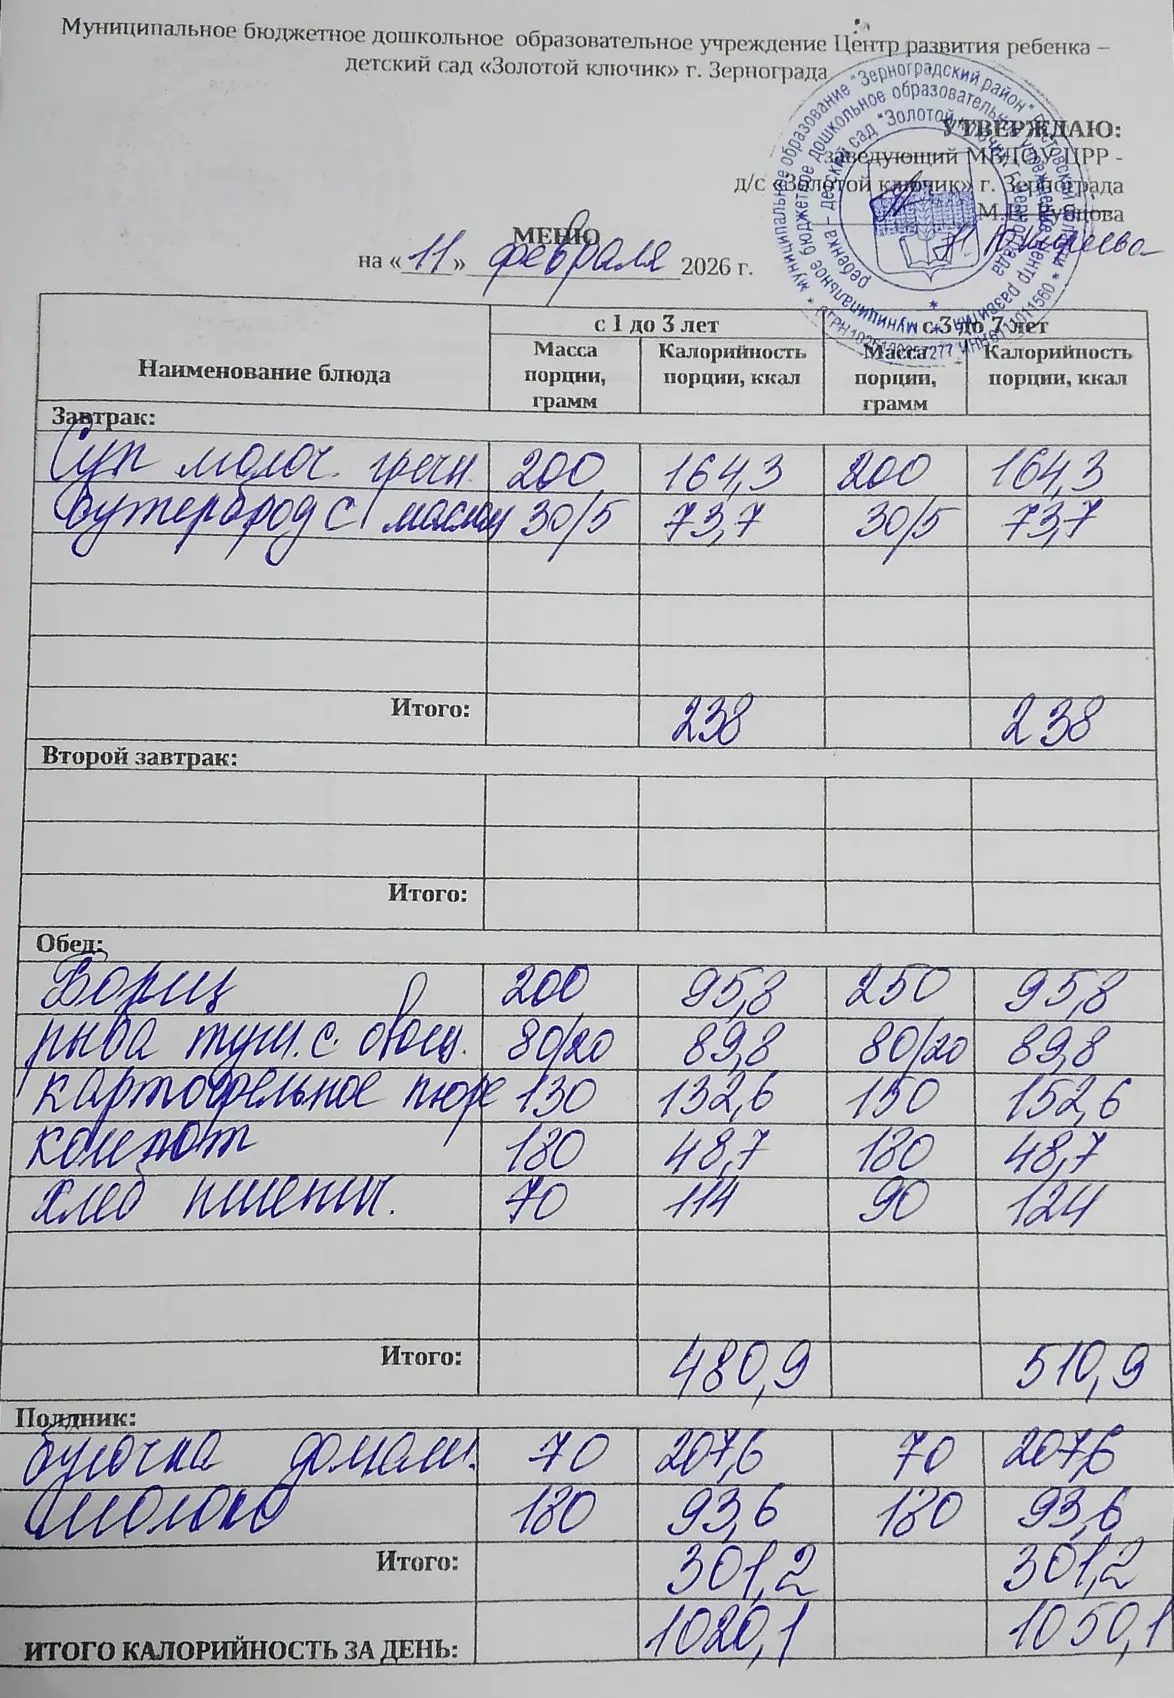 Муниципальное бюджетное дошкольное образовательное учреждение Центр развития ребенка –
детский сад «Золотой ключик» г. Зернограда
УТВЕРЖДАЮ:
заведующий МБДОУ ЦРР -
д/с «Золотой ключик» г. Зернограда
М.В. Рубцова
МЕНЮ
на «11» февраля 2026 г.
Наименование блюда с 1 до 3 лет с 3 до 7 лет
Масса порции, грамм Калорийность порции, ккал Масса порции, грамм Калорийность порции, ккал
Завтрак:
Суп молоч. гречн. 200 164,3 200 164,3
Бутерброд с маслом 30/5 73,7 30/5 73,7
Итого: 238 238
Второй завтрак:
Итого:
Обед:
Борщ 200 95,8 250 95,8
рыба туш. с. овощ. 80/20 89,8 80/20 89,8
картофельное пюре 130 132,6 150 152,6
компот 180 48,7 180 48,7
хлеб пшенич. 70 114 90 124
Итого: 480,9 510,9
Полдник:
булочка домаш. 70 207,6 70 207,6
молоко 180 93,6 180 93,6
Итого: 301,2 301,2
ИТОГО КАЛОРИЙНОСТЬ ЗА ДЕНЬ: 1020,1 1050,1